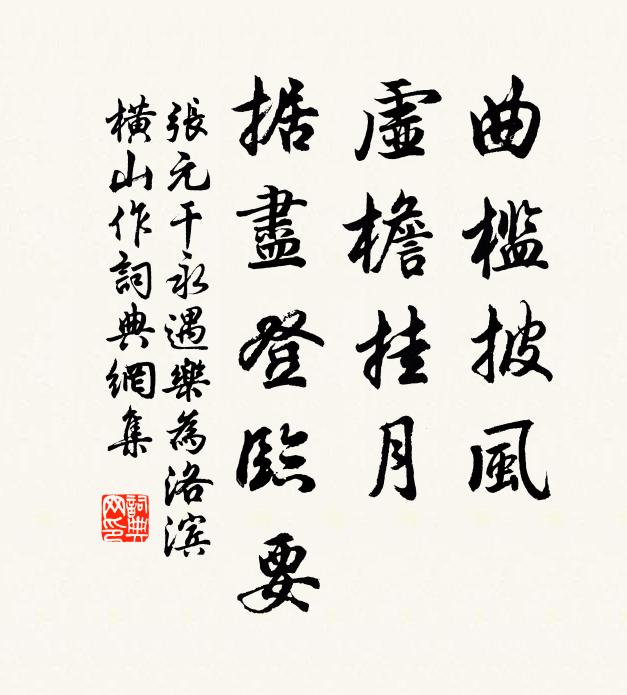 曲檻披風
虛檐挂月
据盡登臨要
張元干永遇樂為洛滨
橫山作詞典網集
詞典網印